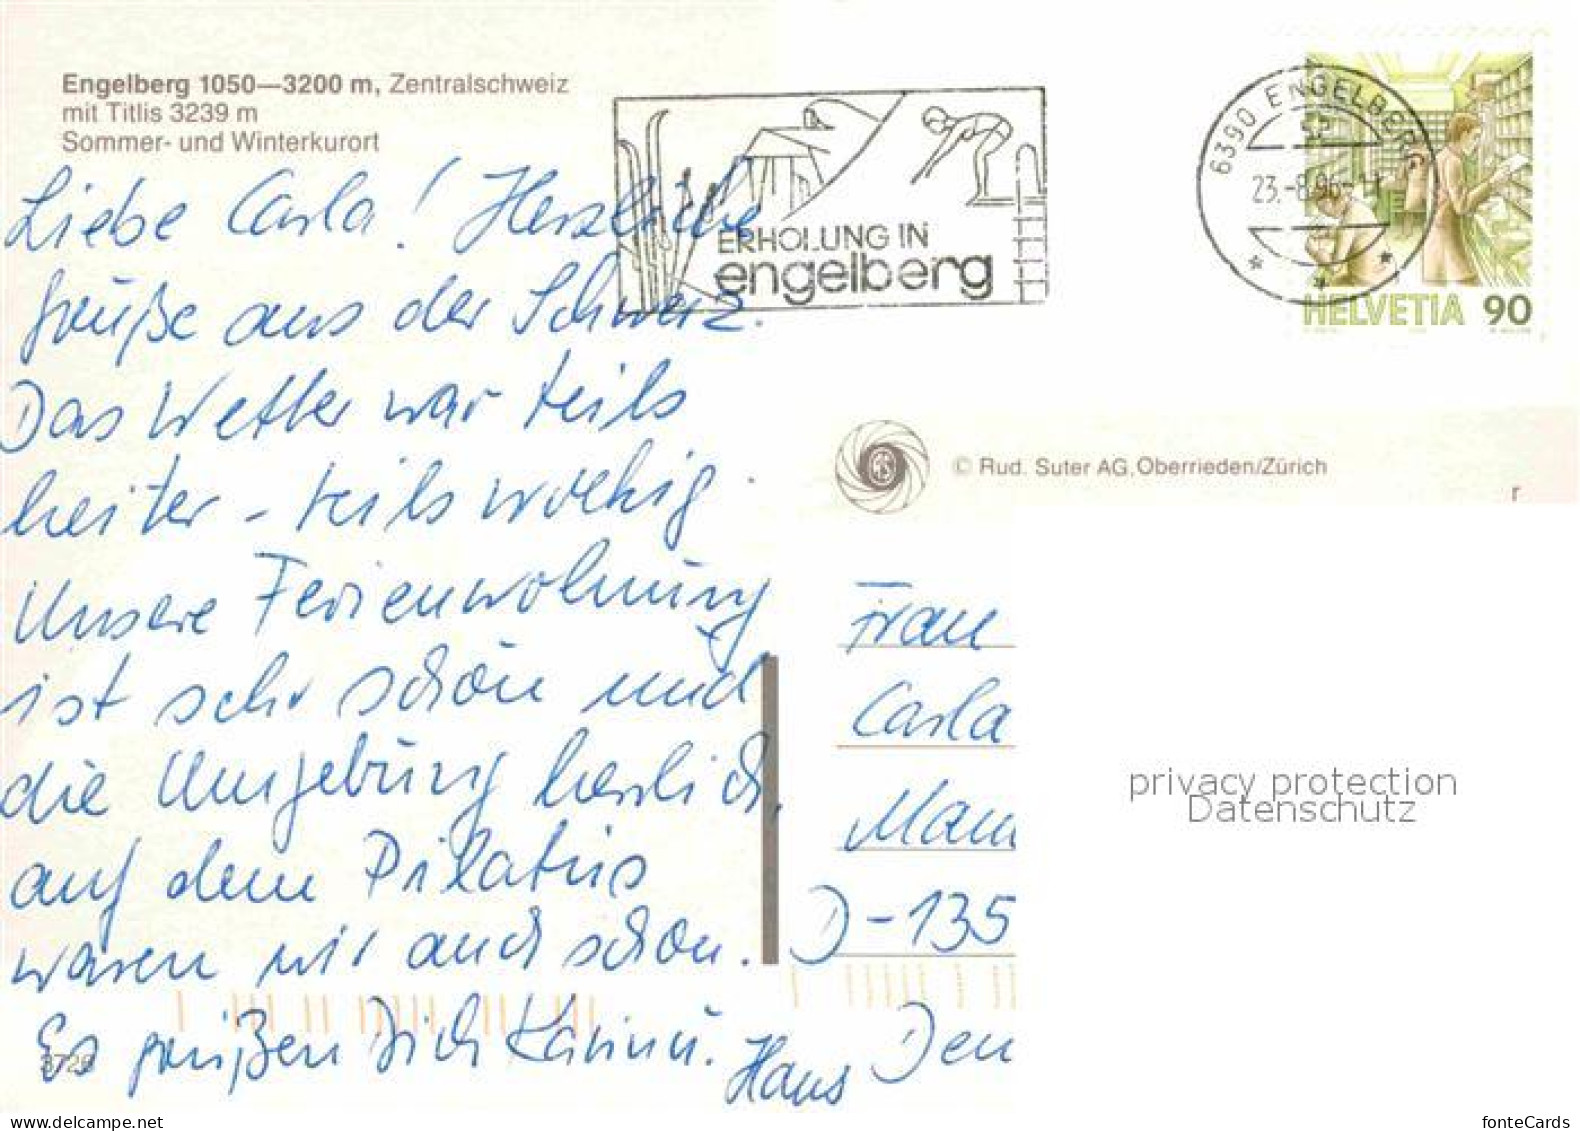 Engelberg 1050—3200 m, Zentralschweiz
mit Titlis 3239 m
Sommer- und Winterkurort
Liebe Carla! Herzliche
Grüße aus der Schweiz.
Das Wetter war teils
heiter - teils wolkig.
Unsere Ferienwohnung
ist sehr schön und
die Umgebung herrlich,
auf dem Pilatus
waren wir auch schon.
Es grüßen Dich Karin u. Hans
3726
ERHOLUNG IN
engelberg
6390 ENGELBERG
23.-8.96-11
HELVETIA 90
© Rud. Suter AG, Oberrieden/Zürich
r
Frau
Carla
D-135
Den
privacy protection
Datenschutz
www.delcampe.net
fonteCards